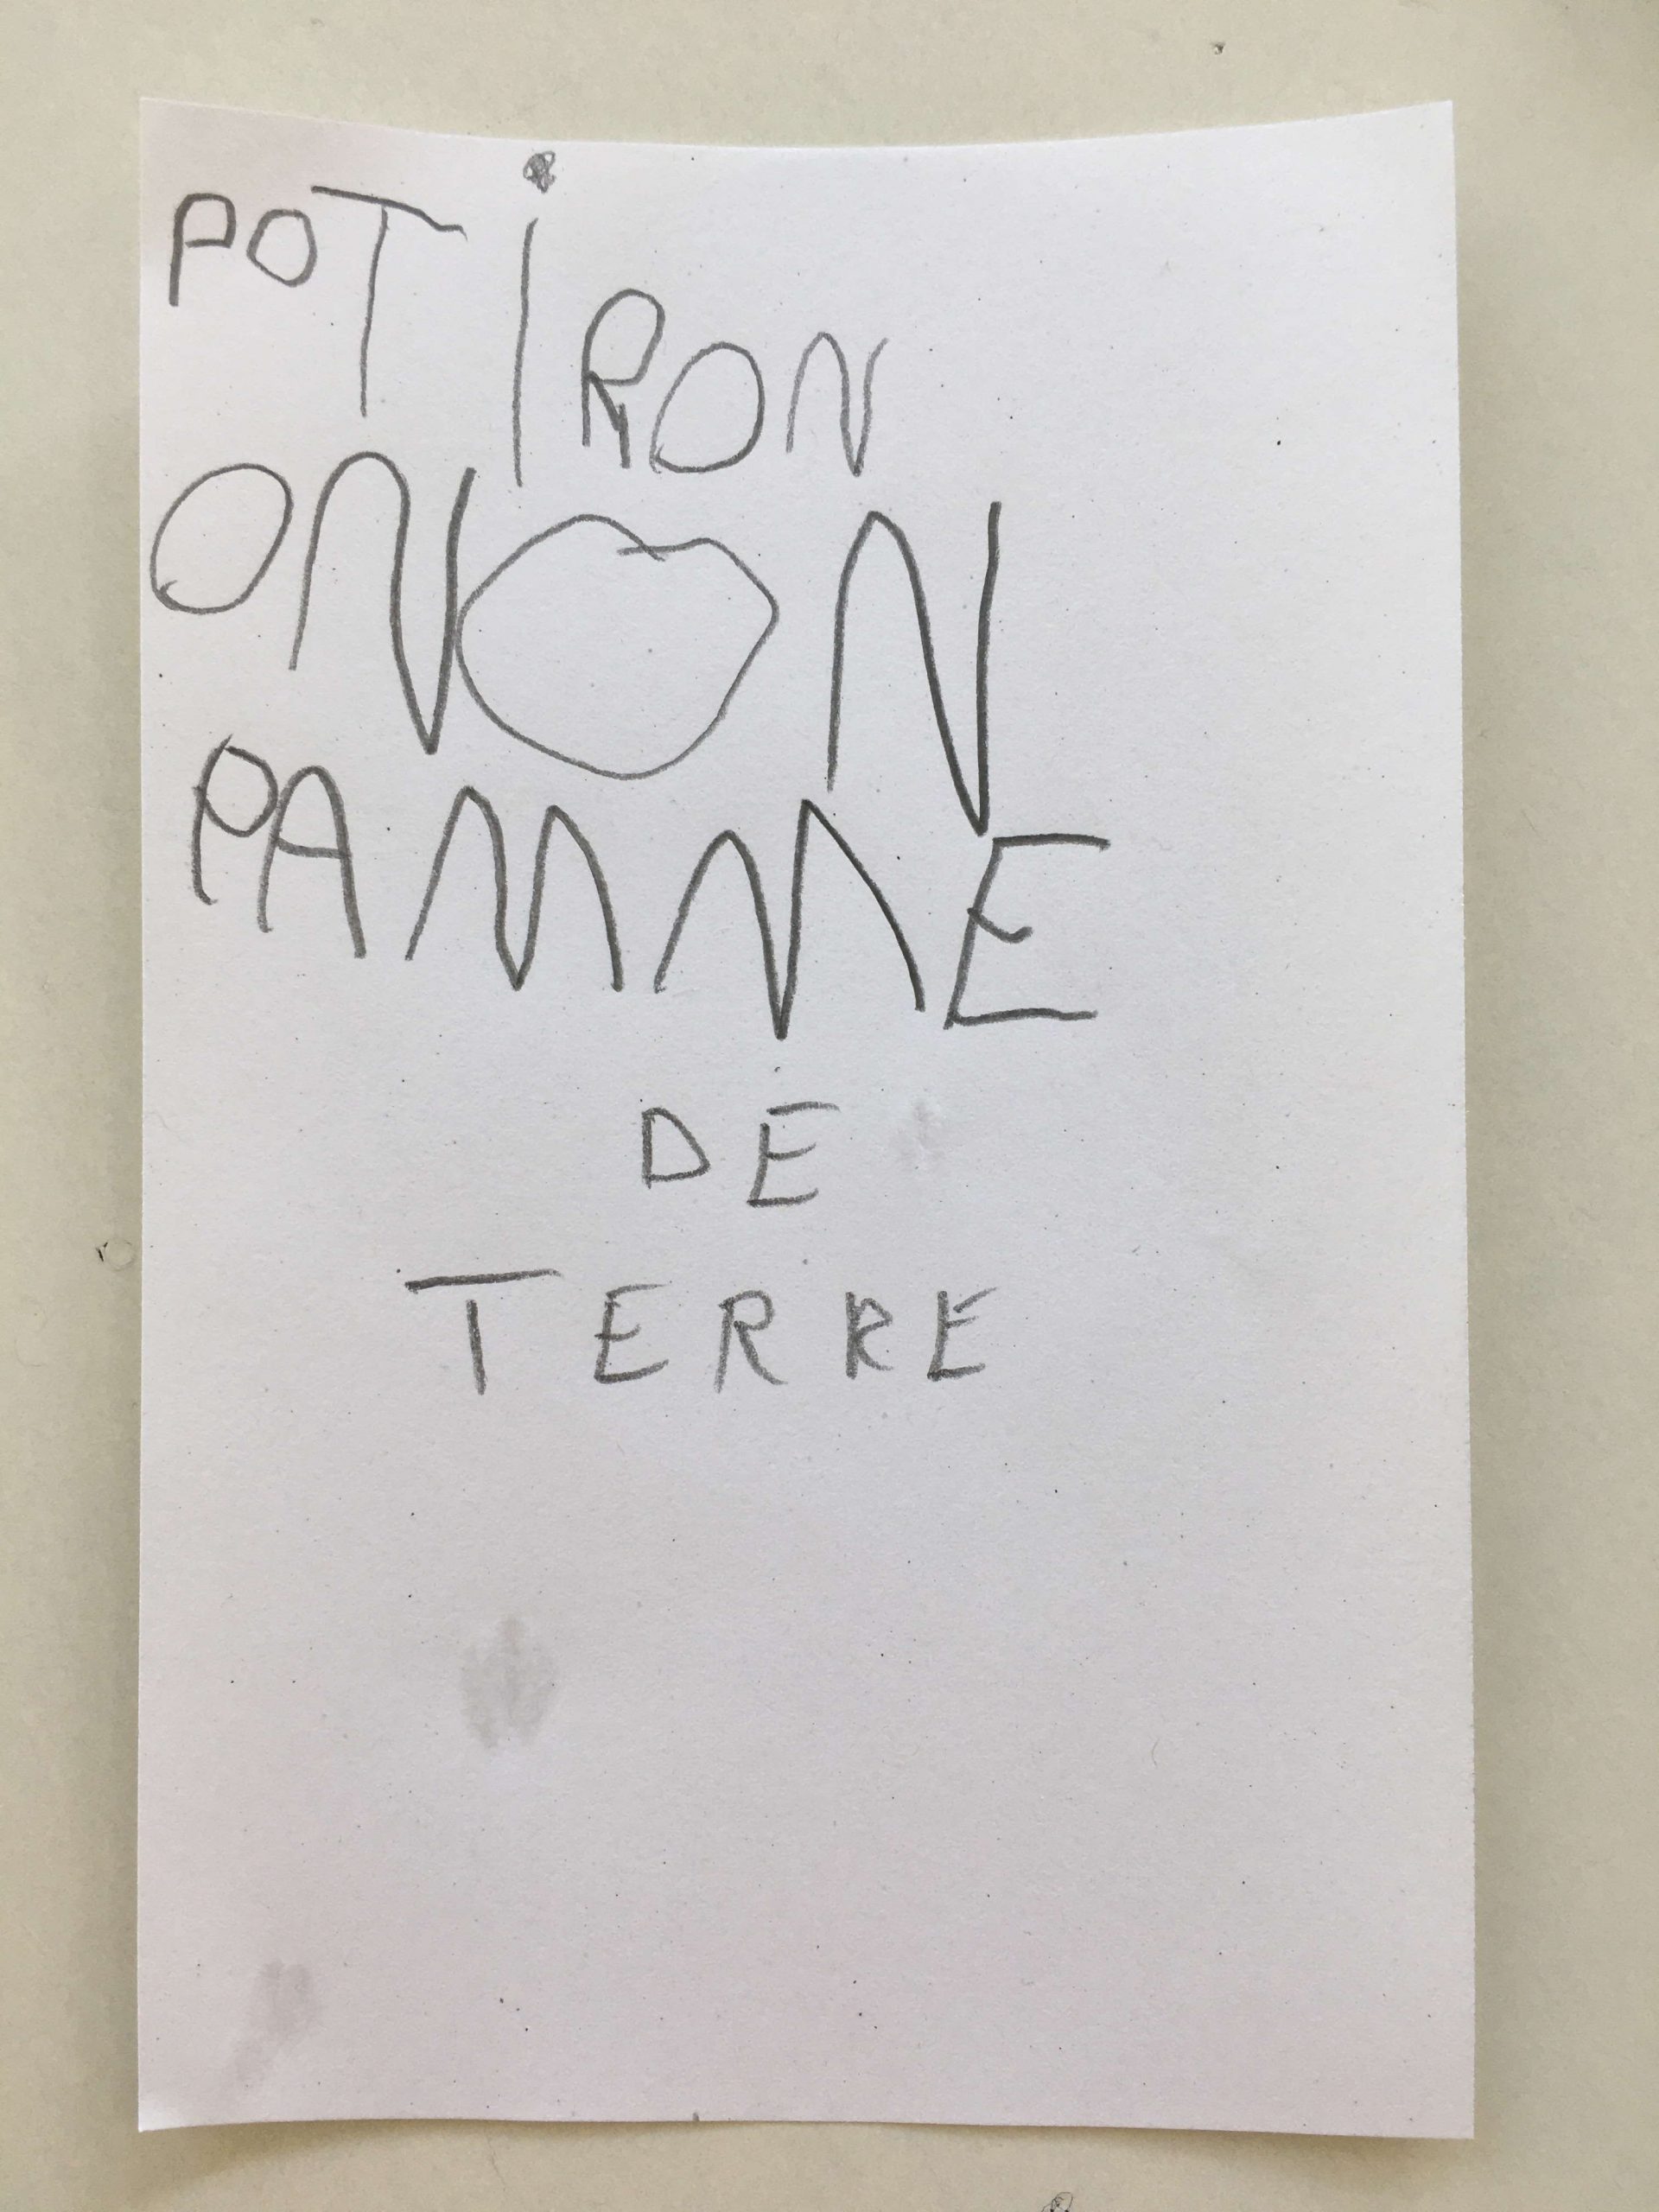 POTiRON
ONON
PAMME
DE
TERRE